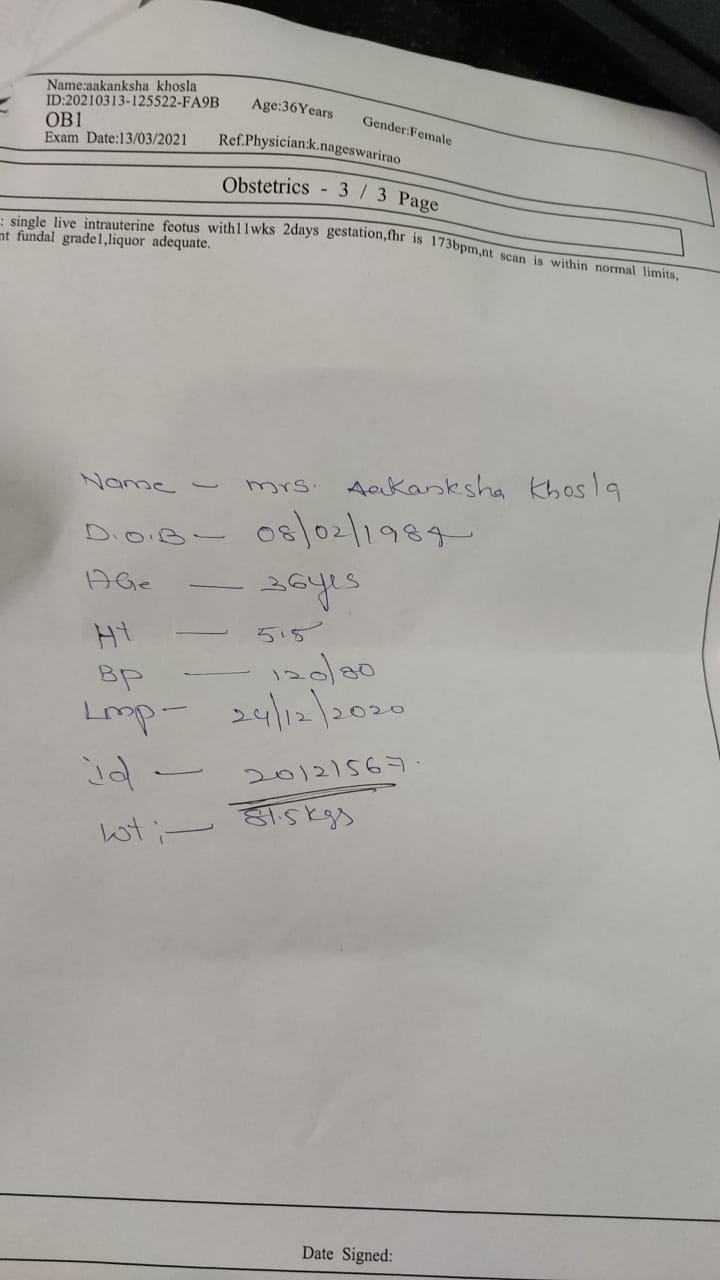 Name:aakanksha khosla
ID:20210313-125522-FA9B Age:36Years Gender:Female
OB1
Exam Date:13/03/2021 Ref.Physician:k.nageswarirao
Obstetrics - 3 / 3 Page
: single live intrauterine feotus with11wks 2days gestation,fhr is 173bpm,nt scan is within normal limits,
nt fundal grade1,liquor adequate.
Name - mrs. Aakanksha Khosla
D.O.B - 08/02/1984
AGe - 36yrs
Ht - 5.5
BP - 120/80
Lmp - 24/12/2020
id - 20121567.
wt :- 81.5kgs
Date Signed: